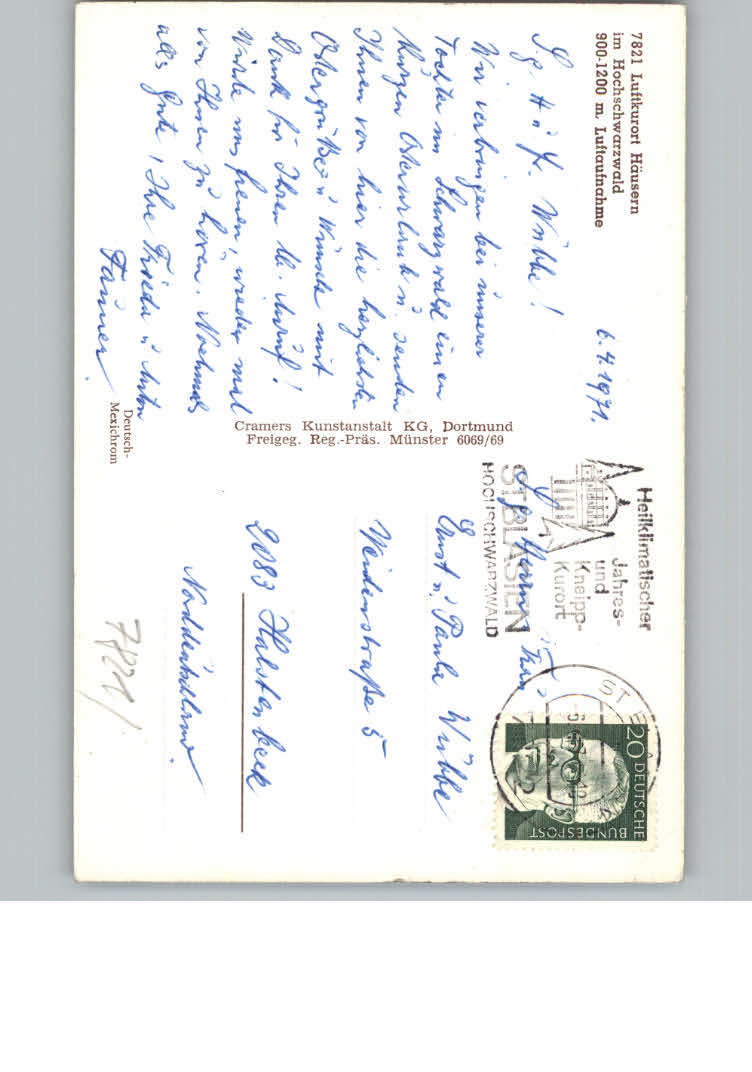 7821 Luftkurort Häusern
im Hochschwarzwald
900-1200 m. Luftaufnahme
6.4.1971.
S. g. H u F. Wübbe!
Wir verbringen bei unserer
Tochter im Schwarzwald einen
kurzen Osterurlaub u. senden
Ihnen von hier die herzlichsten
Ostergrüße u Wünsche mit
Dank für Ihren lb. Anruf!
Würde uns freuen, wieder mal
von Ihnen zu hören. Nochmals
alles Gute, Ihre Frieda u Anton
Deutsch-
Mexichrom
Cramers Kunstanstalt KG, Dortmund
Freigeg. Reg.-Präs. Münster 6069/69
Heilklimatischer
Jahres-
und
Kneipp-
Kurort
ST. BLASIEN
HOCHSCHWARZWALD
ST B
20 DEUTSCHE
BUNDESPOST
Herrn u Frau
Ernst u. Paula Wübbe
Weidenstraße 5
2083 Halstenbek
Norddeutschland.